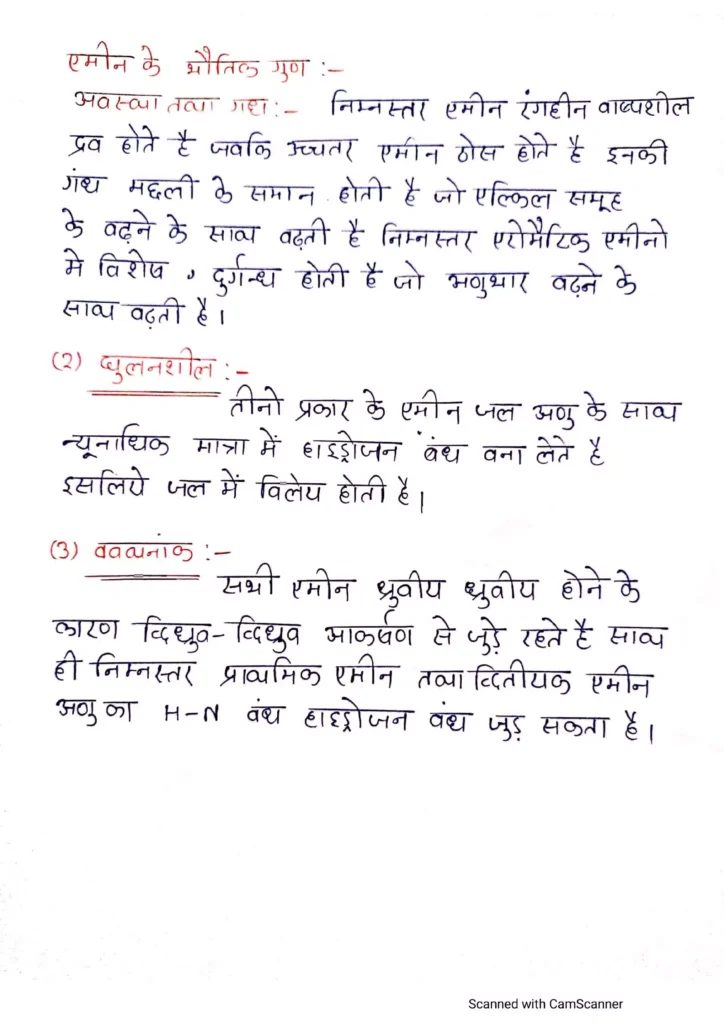 एमीन के भौतिक गुण :-
अवस्था तथा गंध :- निम्नस्तर एमीन रंगहीन वाष्पशील
द्रव होते है जबकि उच्चतर एमीन ठोस होते है इनकी
गंध मछली के समान होती है जो एल्किल समूह
के बढ़ने के साथ बढ़ती है निम्नस्तर एरोमैटिक एमीनो
मे विशेष , दुर्गन्ध होती है जो अणुभार बढ़ने के
साथ बढ़ती है।
(2) घुलनशील :-
तीनो प्रकार के एमीन जल अणु के साथ
न्यूनाधिक मात्रा में हाइड्रोजन बंध बना लेते है
इसलिये जल में विलेय होती है।
(3) क्वथनांक :-
सभी एमीन ध्रुवीय ध्रुवीय होने के
कारण द्विध्रुव-द्विध्रुव आकर्षण से जुड़े रहते है साथ
ही निम्नस्तर प्राथमिक एमीन तथा द्वितीयक एमीन
अणु का H-N बंध हाइड्रोजन बंध जुड़ सकता है।
Scanned with CamScanner